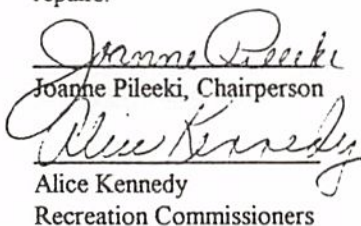 Joanne Pileeki
Joanne Pileeki, Chairperson
Alice Kennedy
Alice Kennedy
Recreation Commissioners